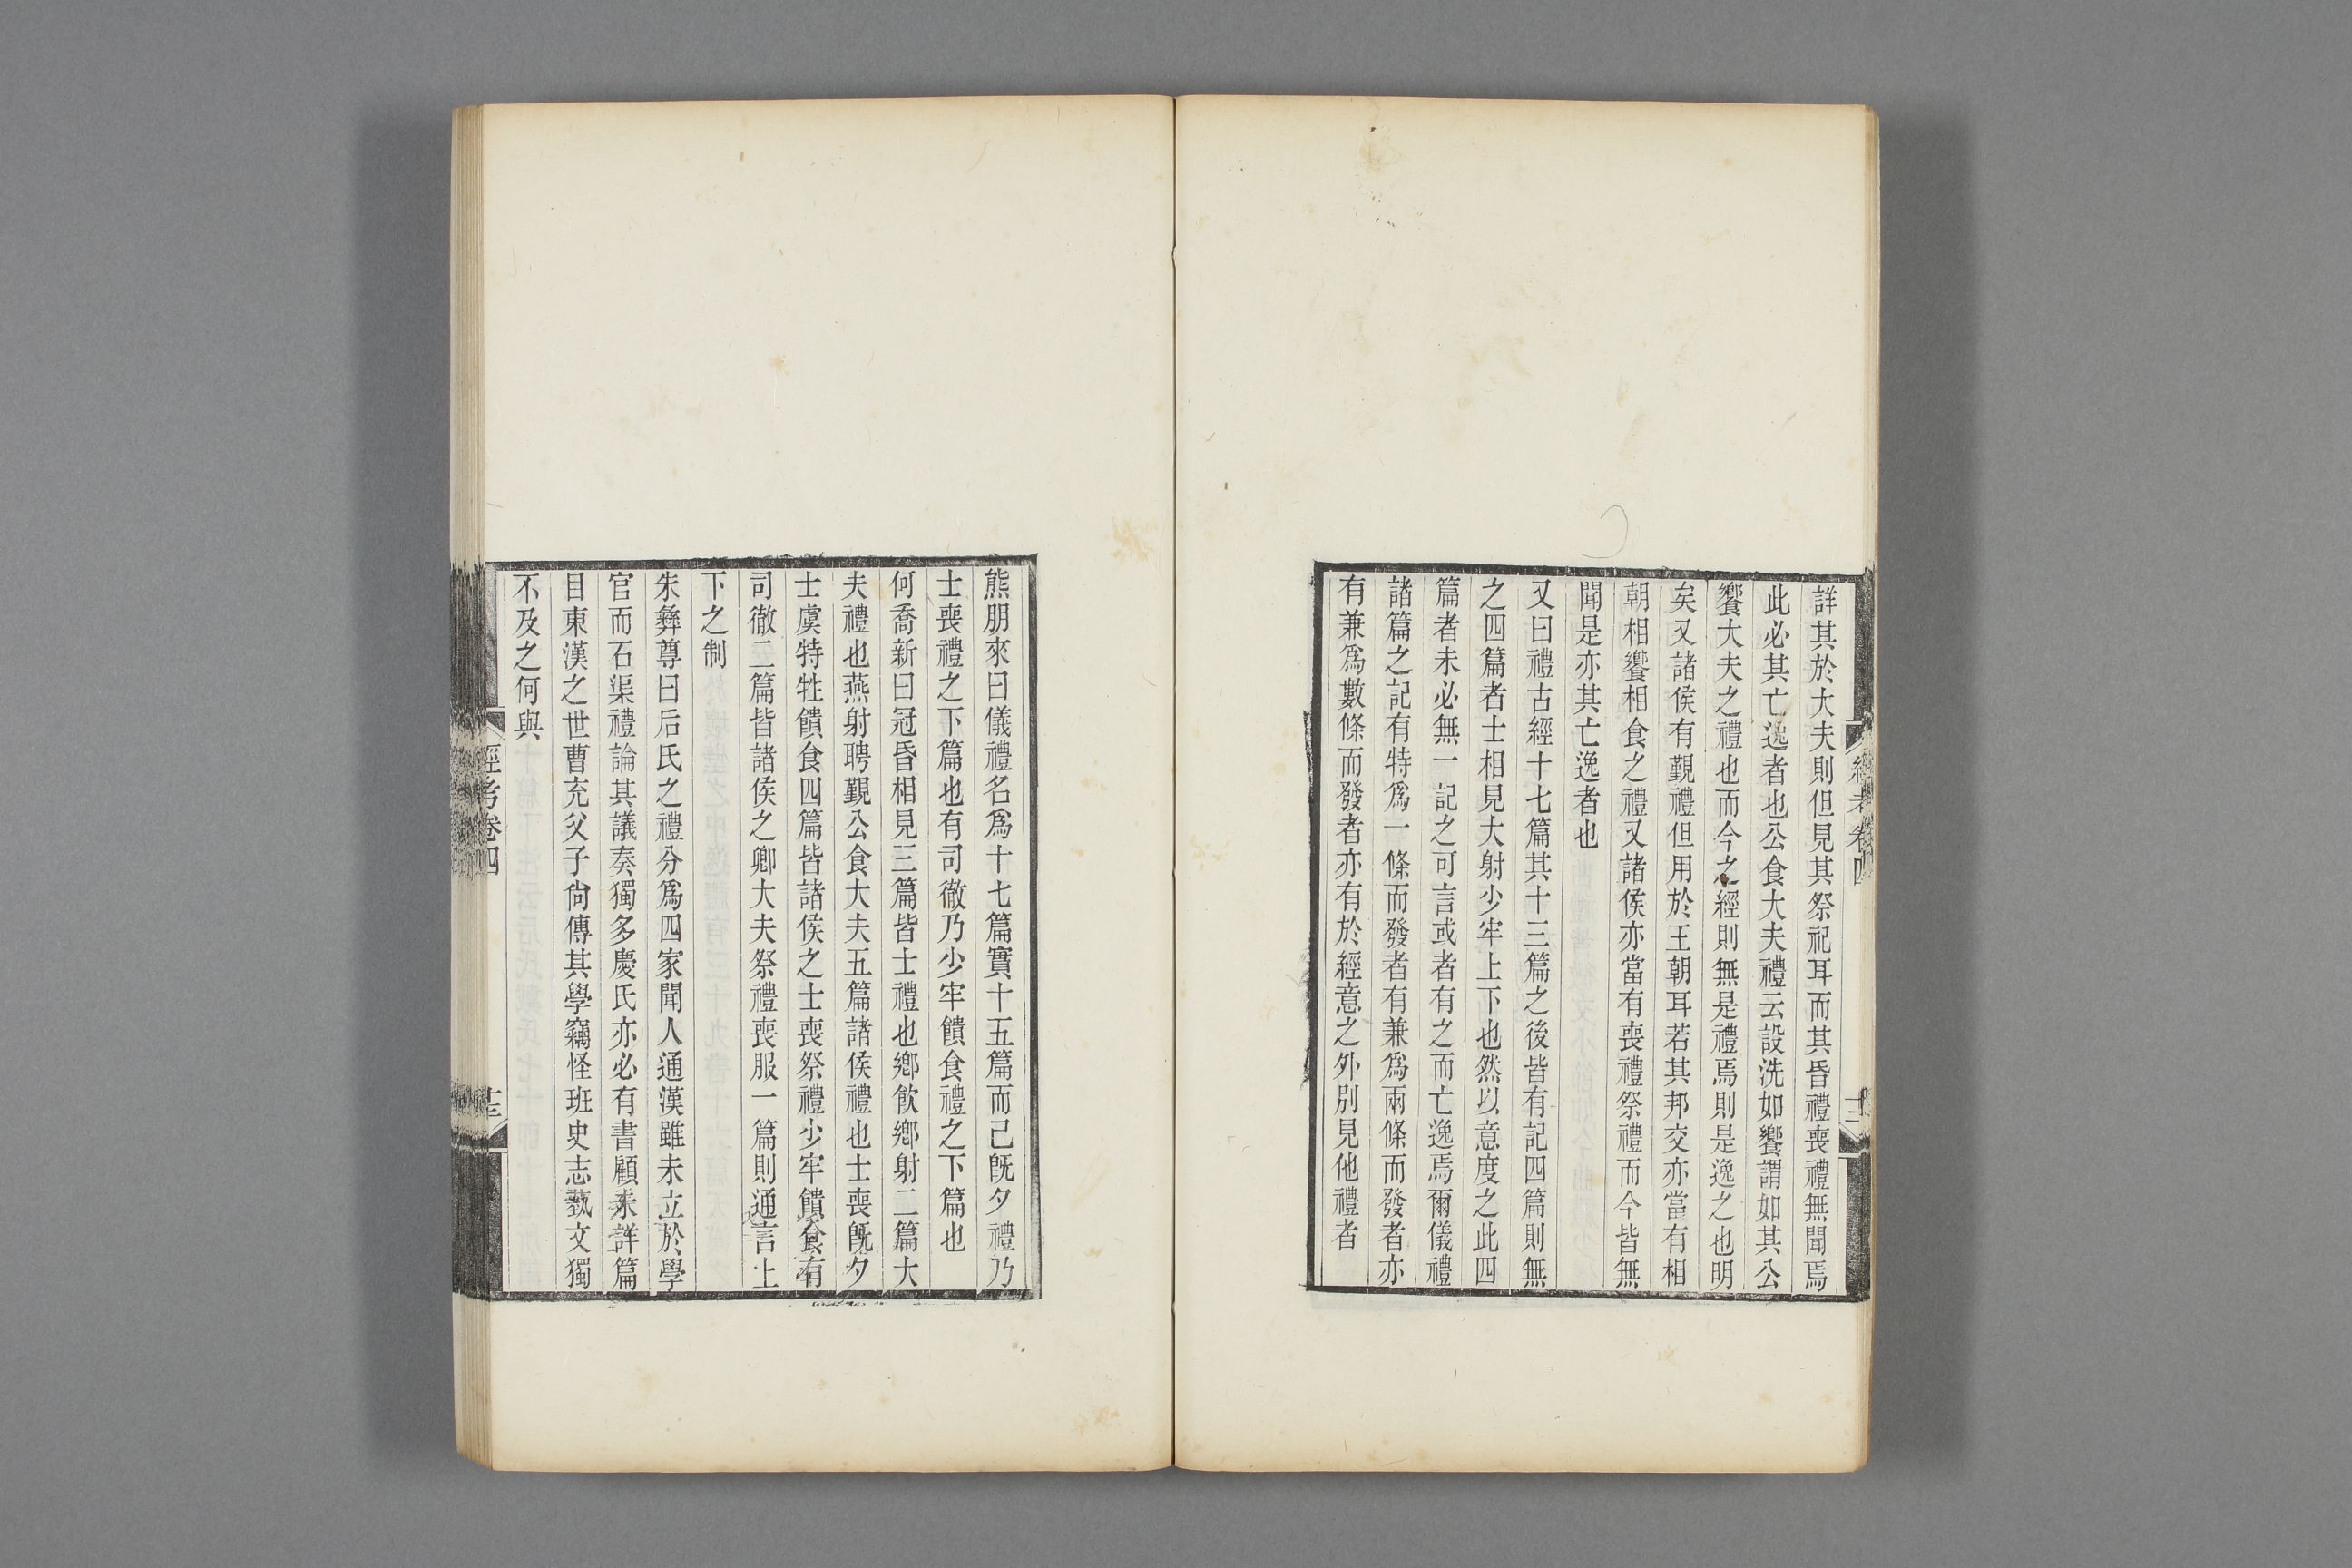 詳其於大夫則但見其祭祀耳而其昏禮喪禮無聞焉
此必其亡逸者也公食大夫禮云設洗如饗謂如其公
饗大夫之禮也而今之經則無是禮焉則是逸之也明
矣又諸侯有覲禮但用於王朝耳若其邦交亦當有相
朝相饗相食之禮又諸侯亦當有喪禮祭禮而今皆無
聞是亦其亡逸者也
又曰禮古經十七篇其十三篇之後皆有記四篇則無
之四篇者士相見大射少牢上下也然以意度之此四
篇者未必無一記之可言或者有之而亡逸焉爾儀禮
諸篇之記有特爲一條而發者有兼爲兩條而發者亦
有兼爲數條而發者亦有於經意之外別見他禮者
經考卷四
十二
熊朋來曰儀禮名爲十七篇實十五篇而已旣夕禮乃
士喪禮之下篇也有司徹乃少牢饋食禮之下篇也
何喬新曰冠昏相見三篇皆士禮也鄉飮鄉射二篇大
夫禮也燕射聘覲公食大夫五篇諸侯禮也士喪旣夕
士虞特牲饋食四篇皆諸侯之士喪祭禮少牢饋食有
司徹二篇皆諸侯之卿大夫祭禮喪服一篇則通言上
下之制
朱彝尊曰后氏之禮分爲四家聞人通漢雖未立於學
官而石渠禮論其議奏獨多慶氏亦必有書顧未詳篇
目東漢之世曹充父子尙傳其學竊怪班史志藝文獨
不及之何與
經考卷四
十三